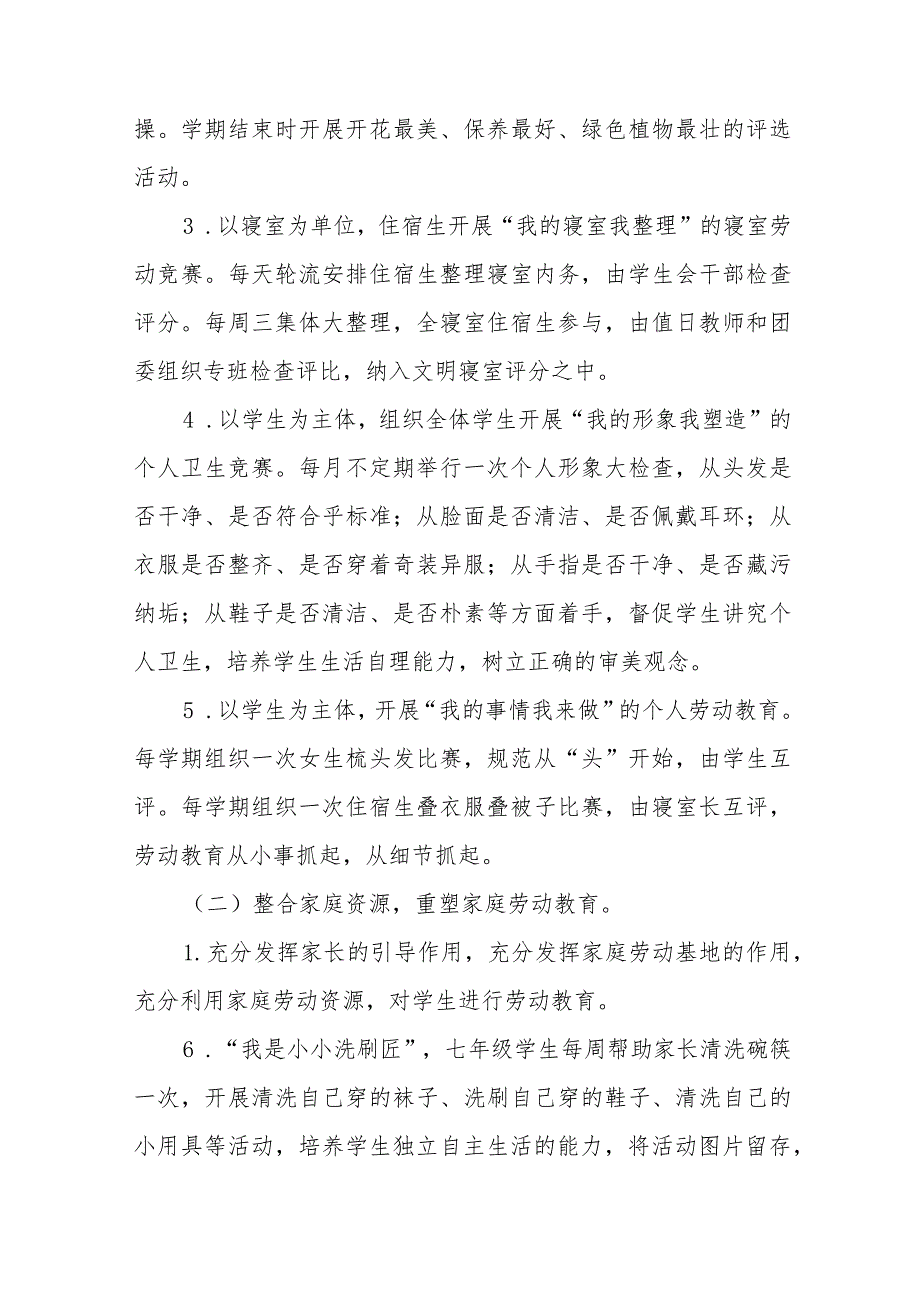 操。学期结束时开展开花最美、保养最好、绿色植物最壮的评选
活动。
3 .以寝室为单位，住宿生开展“我的寝室我整理”的寝室劳
动竞赛。每天轮流安排住宿生整理寝室内务，由学生会干部检查
评分。每周三集体大整理，全寝室住宿生参与，由值日教师和团
委组织专班检查评比，纳入文明寝室评分之中。
4 .以学生为主体，组织全体学生开展“我的形象我塑造”的
个人卫生竞赛。每月不定期举行一次个人形象大检查，从头发是
否干净、是否符合乎标准；从脸面是否清洁、是否佩戴耳环；从
衣服是否整齐、是否穿着奇装异服；从手指是否干净、是否藏污
纳垢；从鞋子是否清洁、是否朴素等方面着手，督促学生讲究个
人卫生，培养学生生活自理能力，树立正确的审美观念。
5 .以学生为主体，开展“我的事情我来做”的个人劳动教育。
每学期组织一次女生梳头发比赛，规范从“头”开始，由学生互
评。每学期组织一次住宿生叠衣服叠被子比赛，由寝室长互评，
劳动教育从小事抓起，从细节抓起。
（二）整合家庭资源，重塑家庭劳动教育。
1.充分发挥家长的引导作用，充分发挥家庭劳动基地的作用，
充分利用家庭劳动资源，对学生进行劳动教育。
6 .“我是小小洗刷匠”，七年级学生每周帮助家长清洗碗筷
一次，开展清洗自己穿的袜子、洗刷自己穿的鞋子、清洗自己的
小用具等活动，培养学生独立自主生活的能力，将活动图片留存，